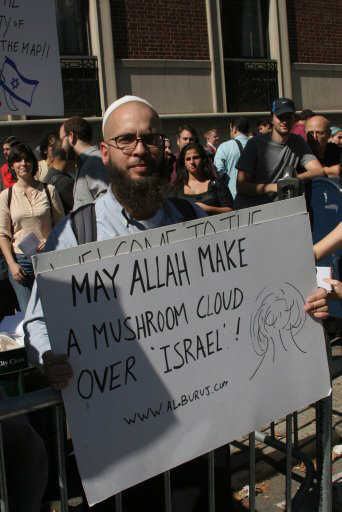 Y OF
THE MAP!!
WELCOME TO THE
MAY ALLAH MAKE
A MUSHROOM CLOUD
OVER 'ISRAEL'!
WWW.ALBURUJ.COM